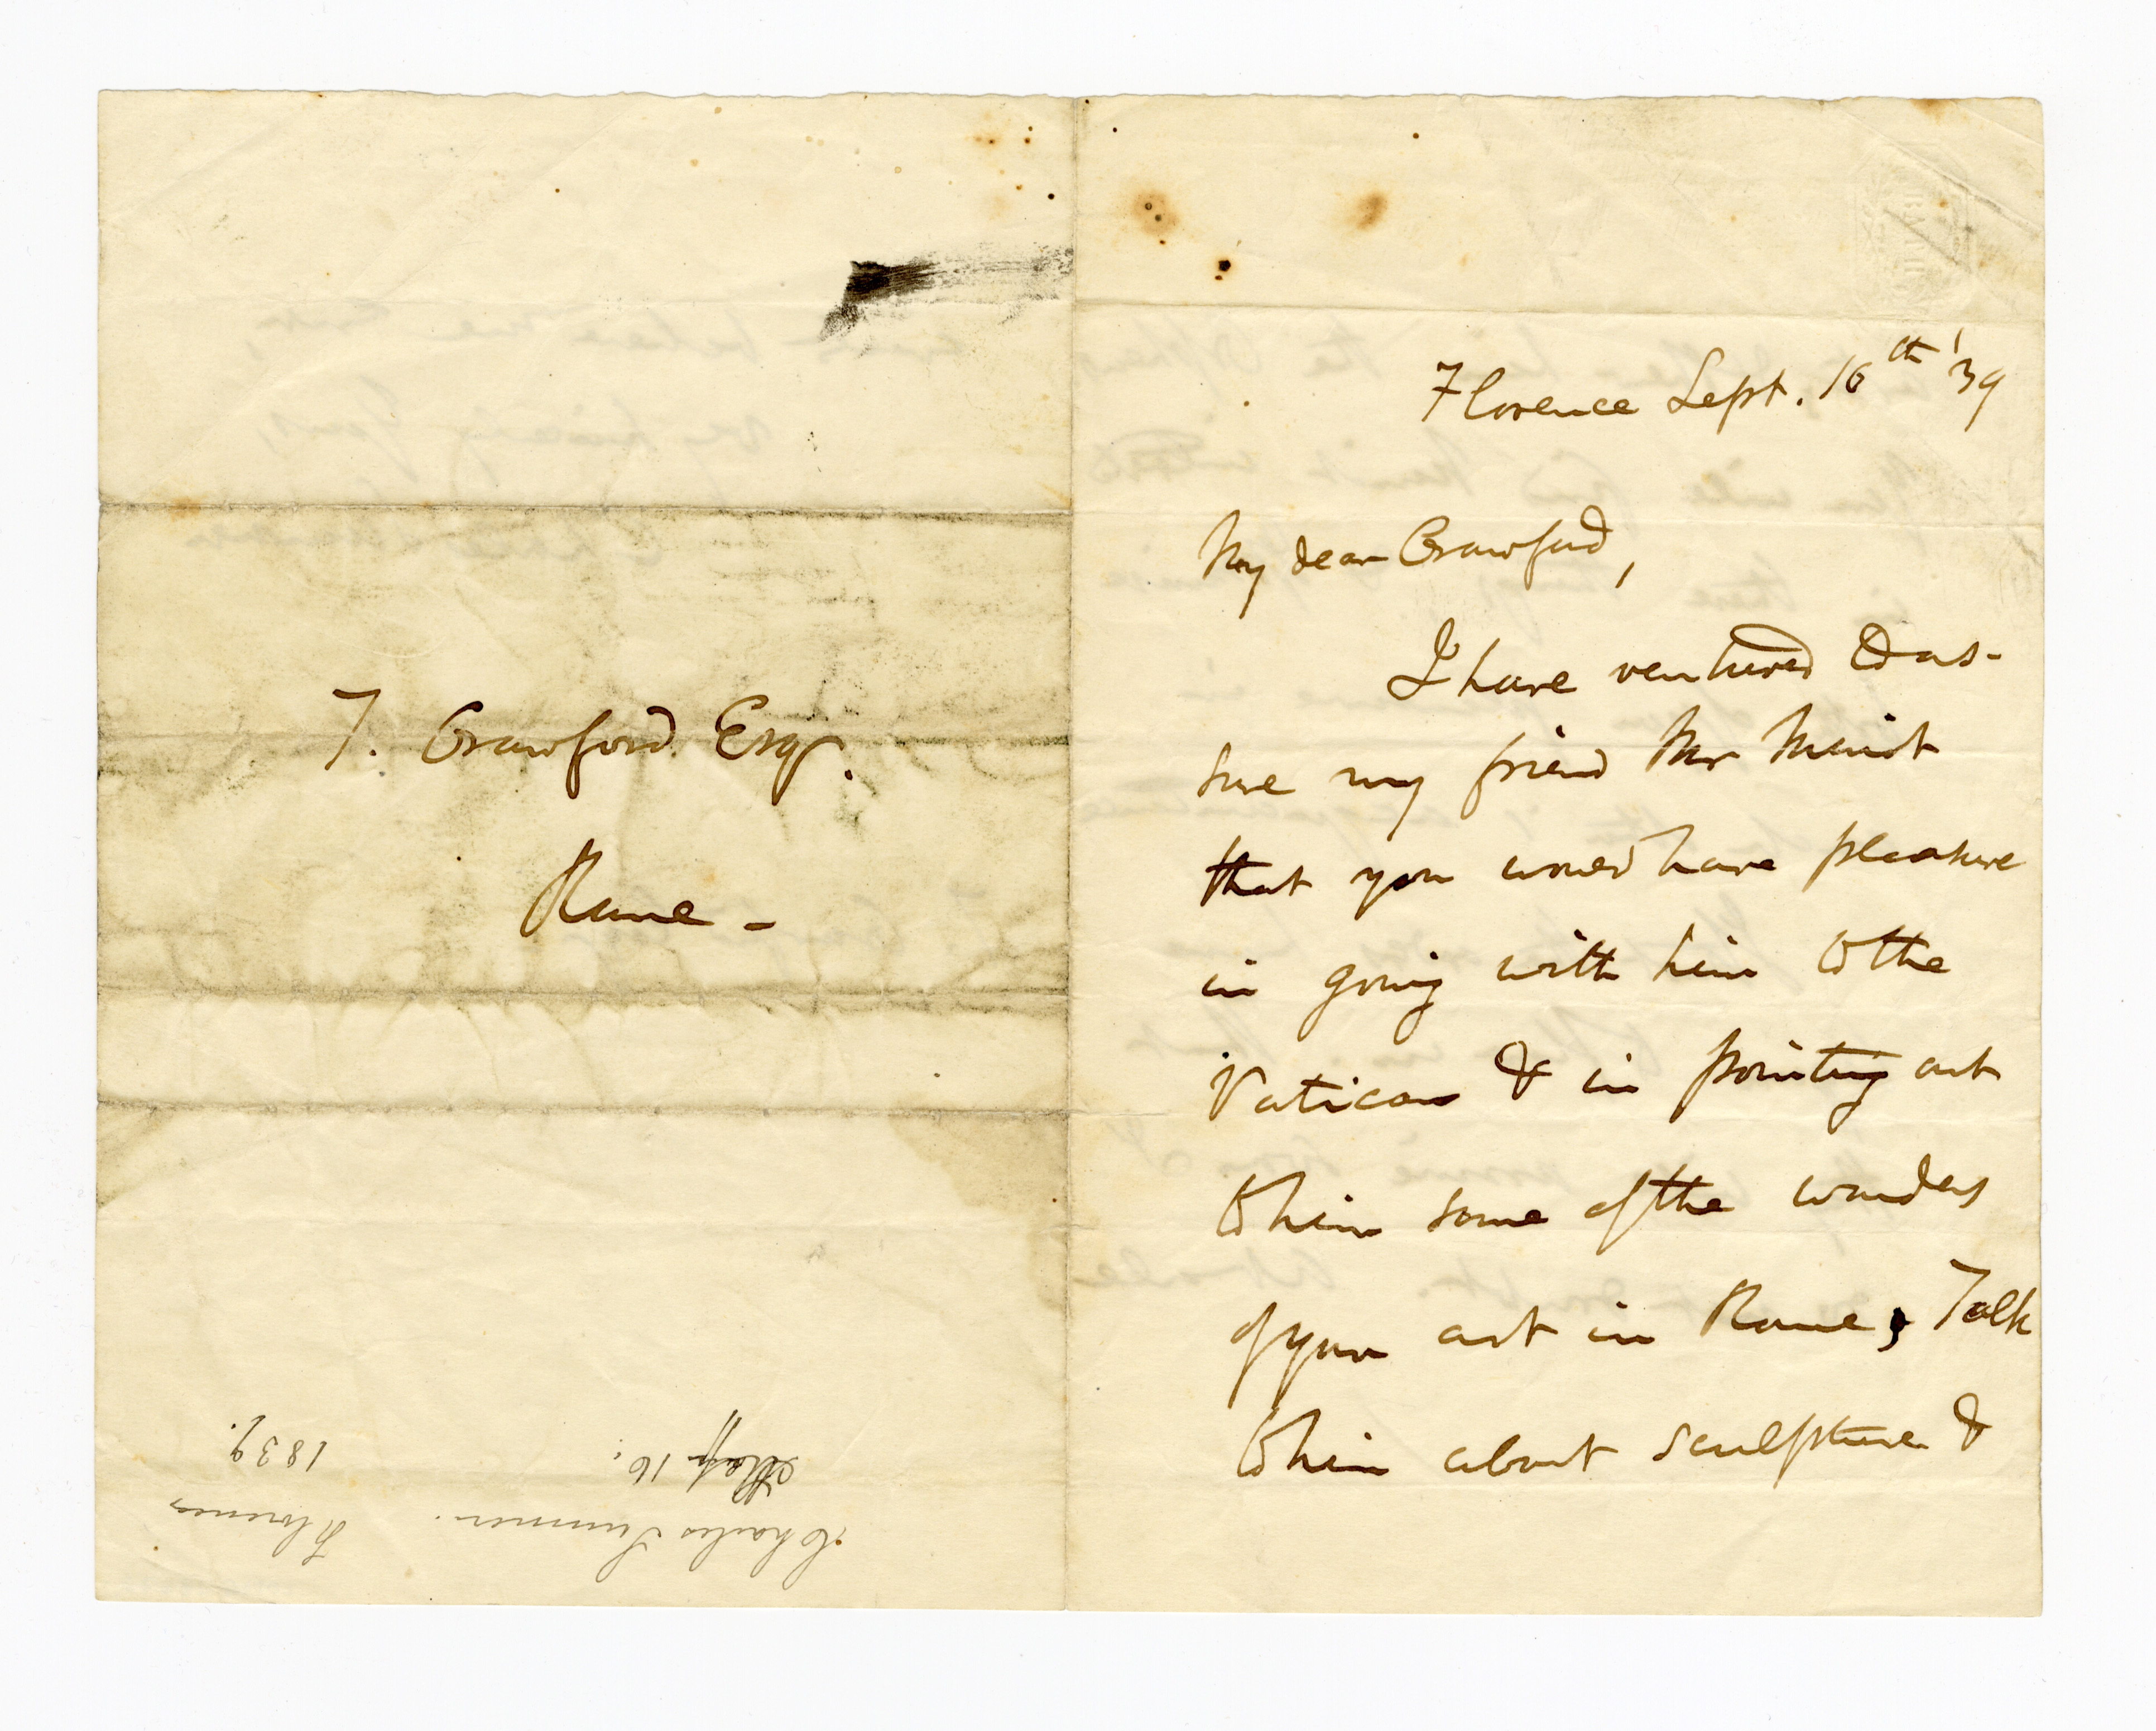 T. Crawford Esq.
Rome -
Charles Sumner. Florence
16. 1839.
BATH
Florence Sept. 16th '39
My dear Crawford,
I have ventured to as-
sure my friend Mr Minot
that you would have pleasure
in going with him to the
Vatican & in pointing out
to him some of the wonders
of your art in Rome, Talk
to him about sculpture &